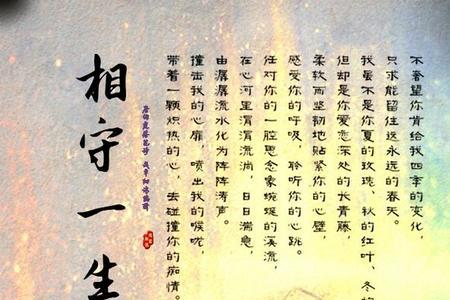 不奢望你肯给我四季的变化,
只求能留住这永远的春天。
我虽不是你夏的玫瑰、秋的红叶、冬的
但却是你爱恋深处的长青藤,
柔软而坚韧地贴紧你的心壁,
感受你的呼吸,聆听你的心跳。
任对你的一腔思念象蜿蜒的溪流,
在心河里涓涓流淌,日日湍急,
由潺潺流水化为阵阵涛声。
撞击我的心扉,喷出我的喉咙,
带着一颗炽热的心,去碰撞你的痴情。
相守一生